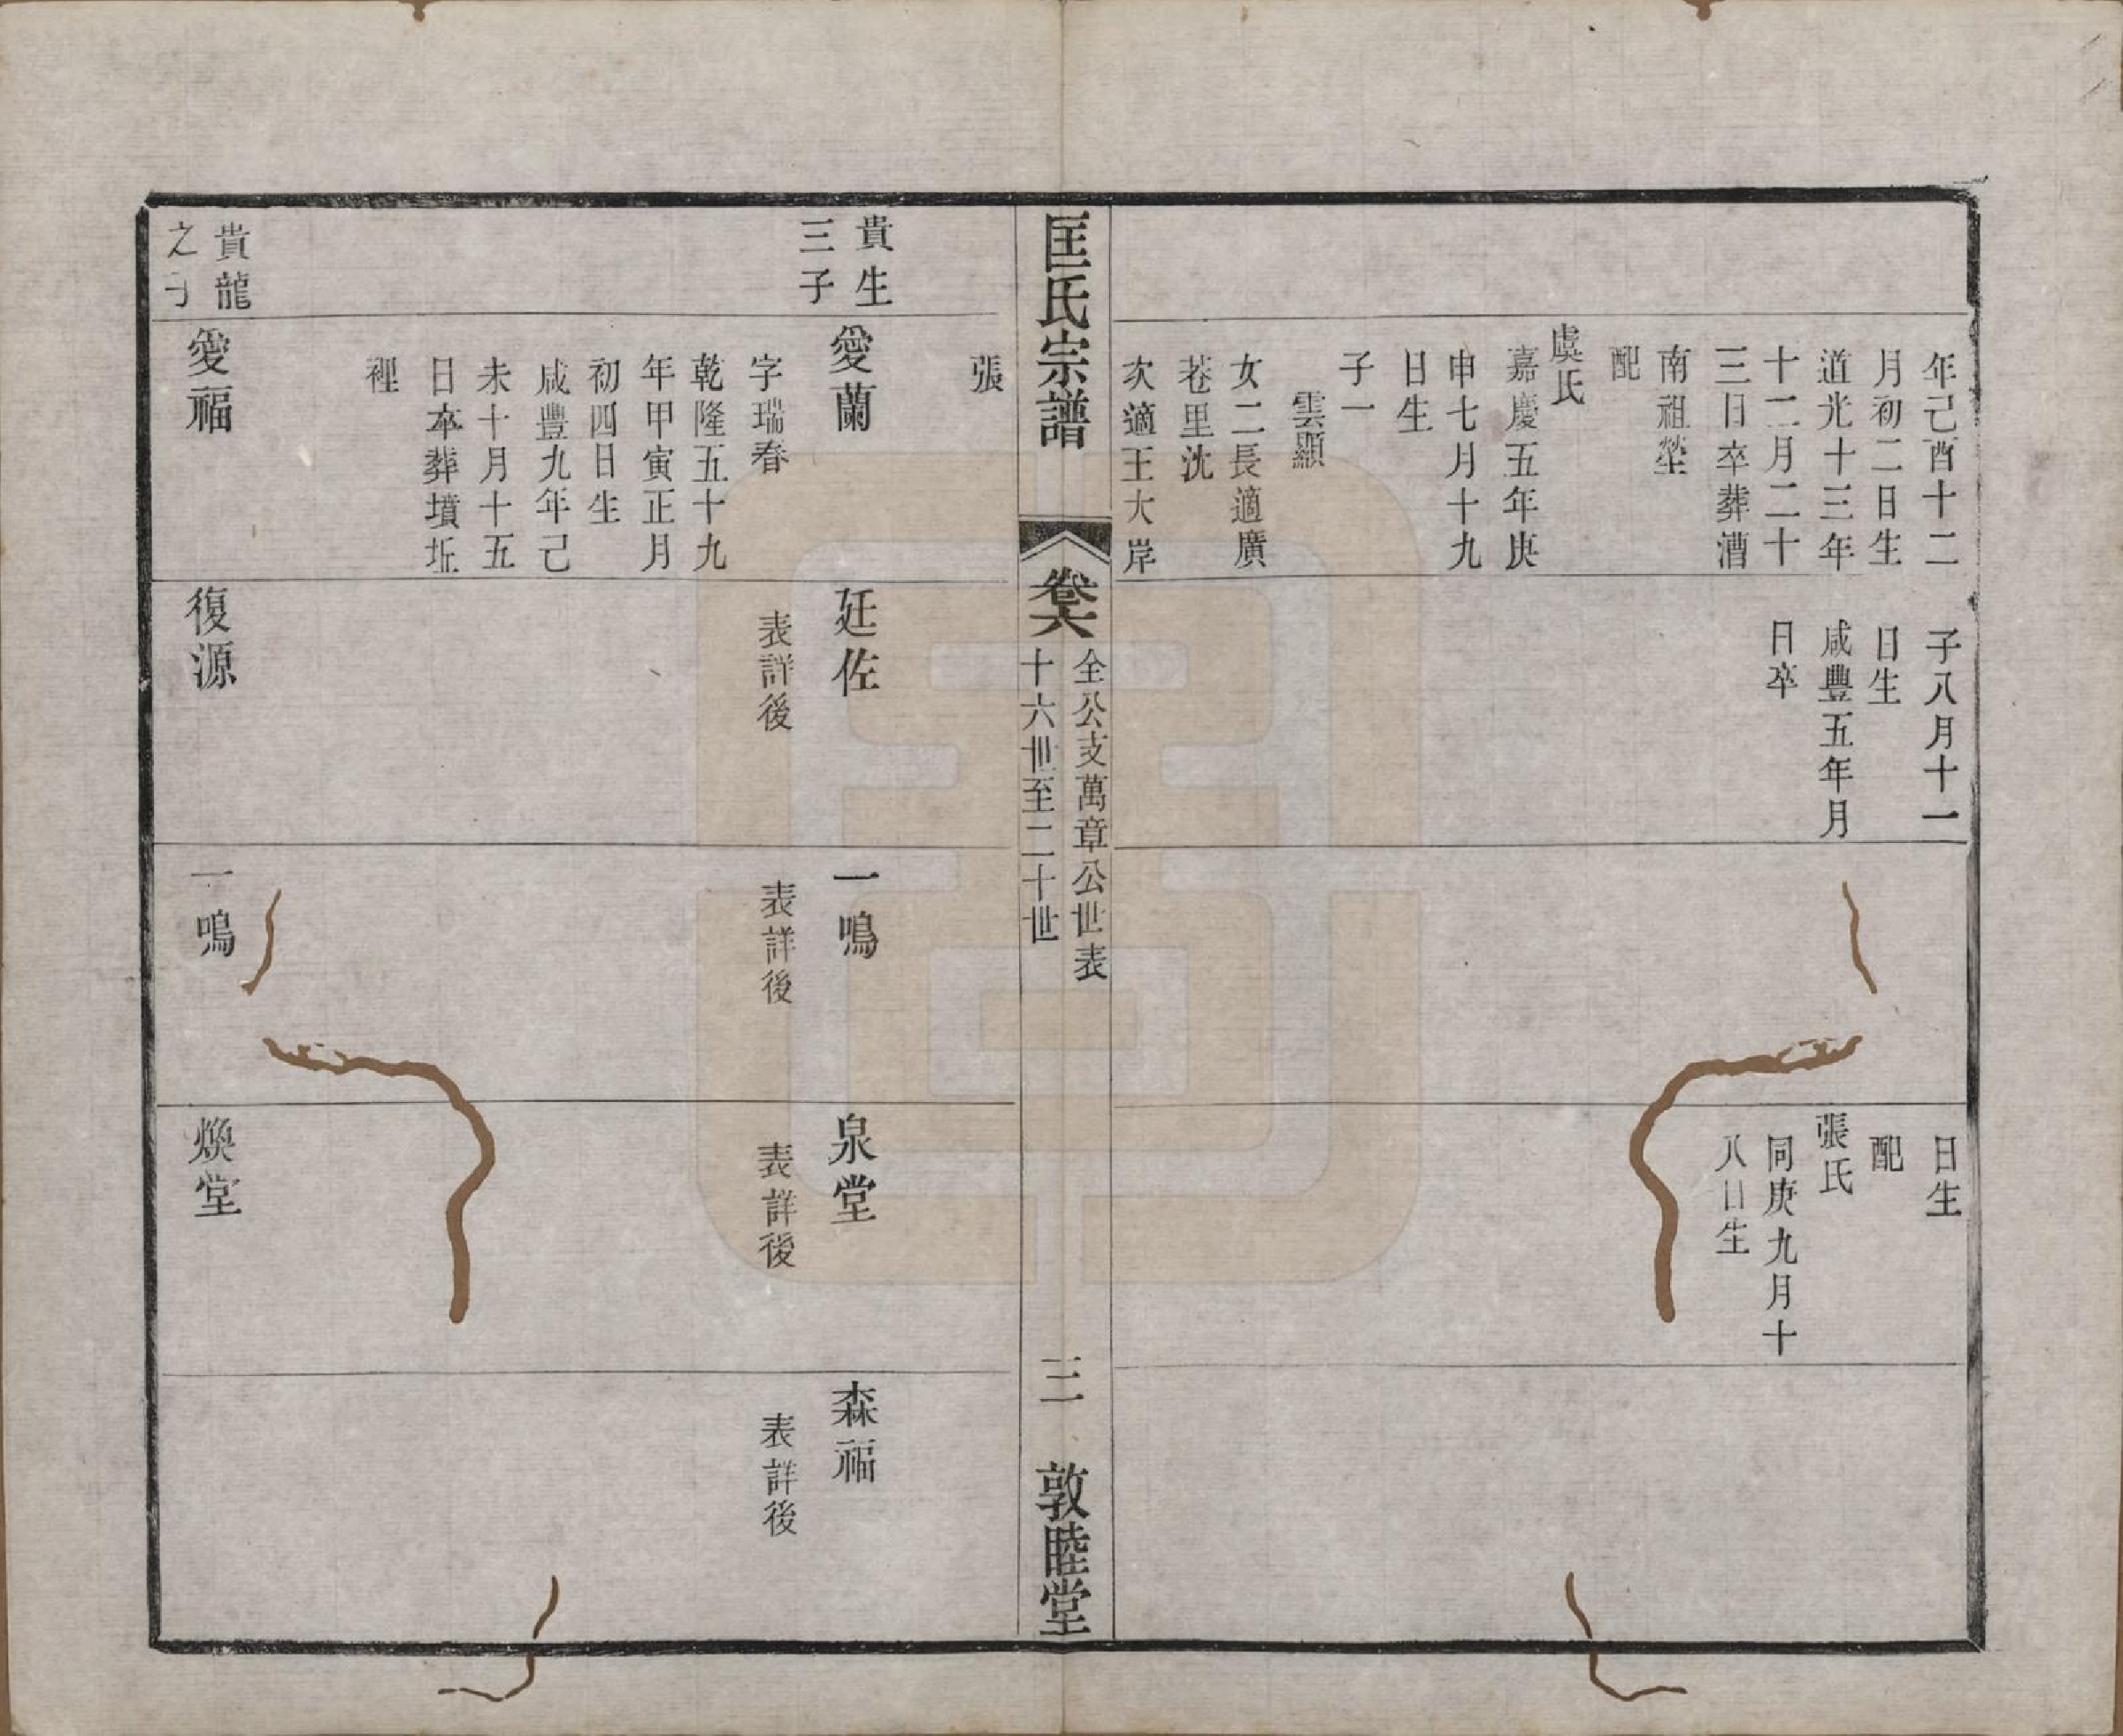 年己酉十二
月初二日生
道光十三年
十二月二十
三日卒葬漕
南祖塋
配
虞氏
嘉慶五年庚
申七月十九
日生
子一
雲顯
女二長適廣
巷里沈
次適王大岸
子八月十一
日生
咸豐五年月
日卒
日生
配
張氏
同庚九月十
八日生
匡氏宗譜
卷六
全公支萬章公世表
十六世至二十世
三
敦睦堂
張
貴生
三子
愛蘭
字瑞春
乾隆五十九
年甲寅正月
初四日生
咸豐九年己
未十月十五
日卒葬墳坵
裡
延佐
表詳後
一鳴
表詳後
泉堂
表詳後
森福
表詳後
貴龍
之子
愛福
復源
一鳴
煥堂